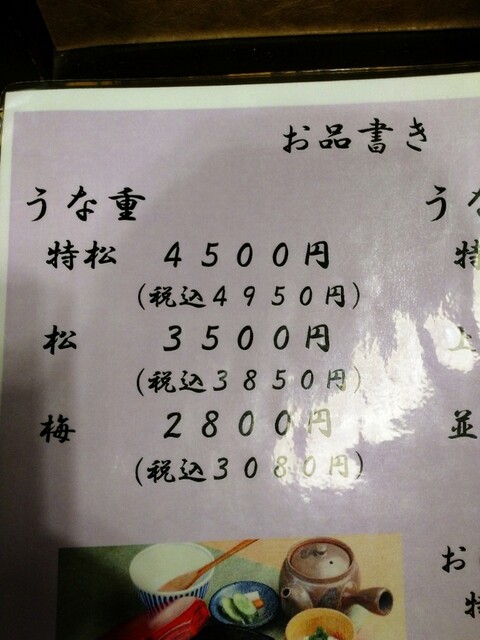 お品書き
うな重
特松 4500円
(税込4950円)
松 3500円
(税込3850円)
梅 2800円
(税込3080円)
うな
特
上
並
お
特